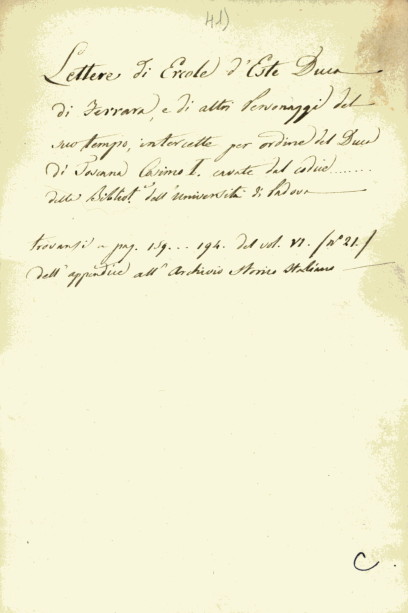 41)
Lettere di Ercole d'Este Duca
di Ferrara, e di altri Personaggi del
suo tempo, intercette per ordine del Duca
di Toscana Cosimo I. cavate dal codice ........
della Bibliot.ª dell'Università di Padova
trovansi a pag. 159... 194. del vol. VI. (nº 21.)
dell'appendice all'Archivio Storico Italiano
C.